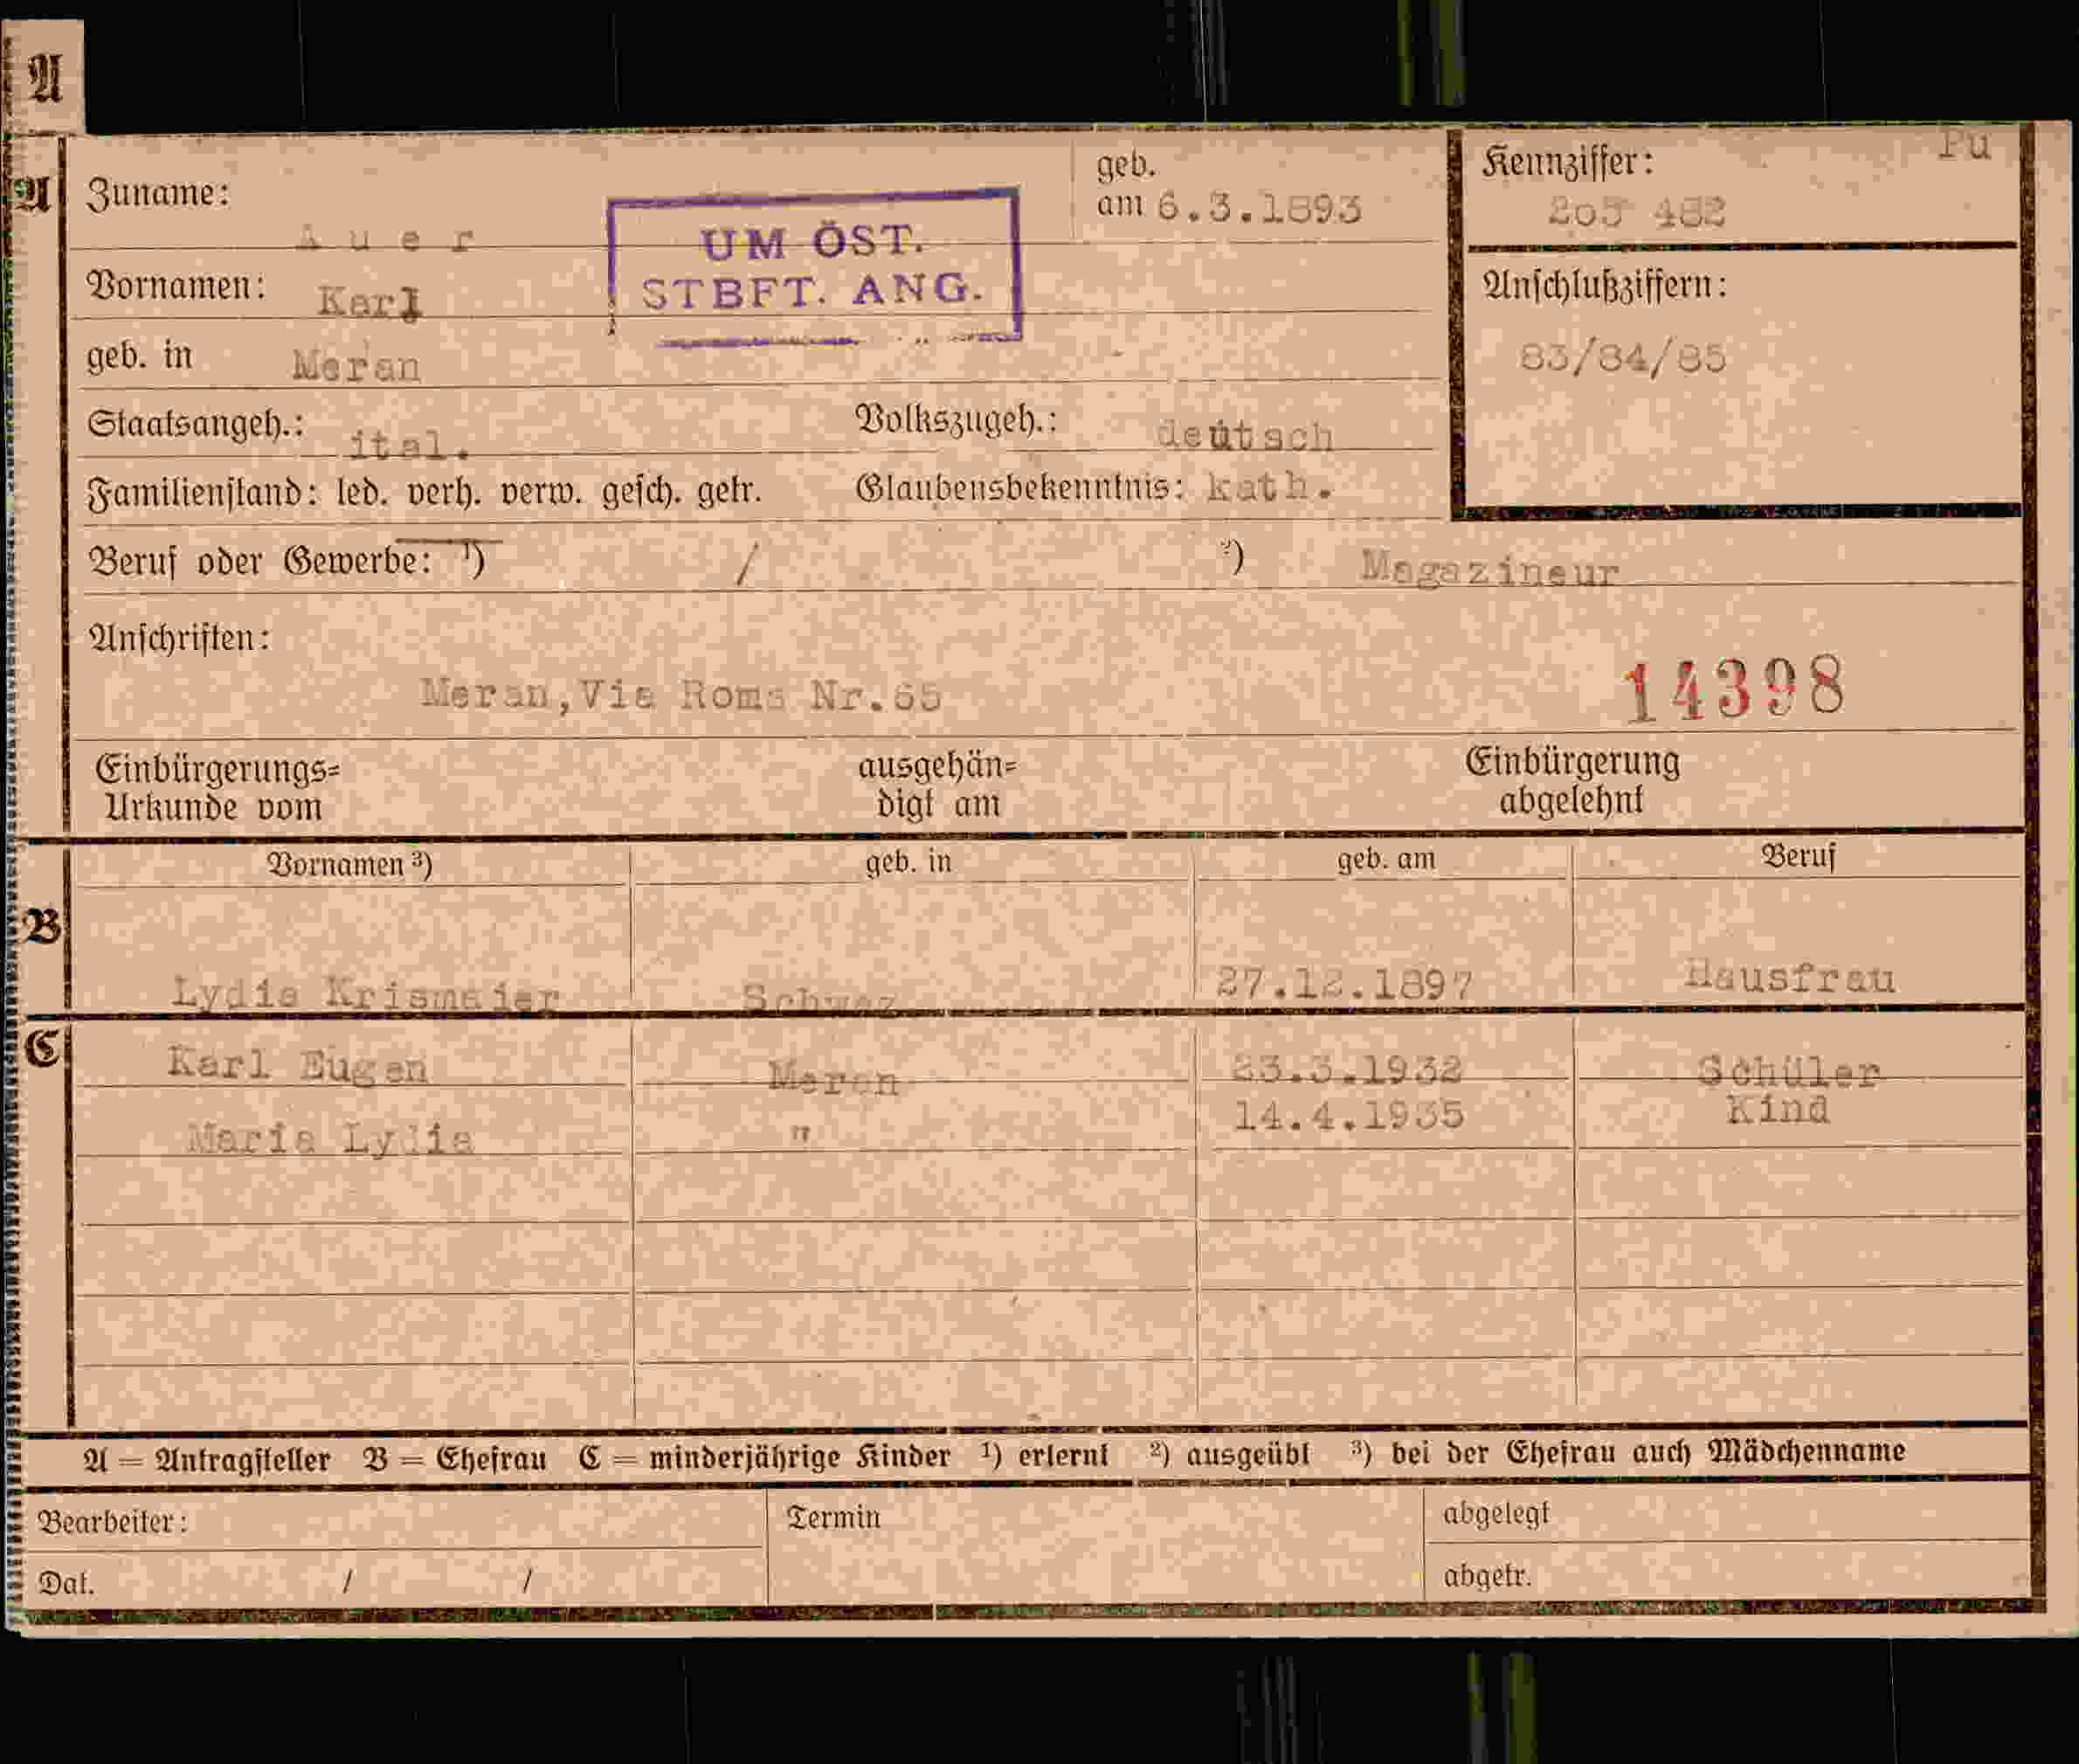 A
Pu
A
Zuname: Auer
geb. am 6.3.1893
Kennziffer: 205 482
UM ÖST.
STBFT. ANG.
Vornamen: Karl
Anschlußziffern:
83/84/85
geb. in Meran
Staatsangeh.: ital. Volkszugeh.: deutsch
Familienstand: led. verh. verw. gesch. getr. Glaubensbekenntnis: kath.
Beruf oder Gewerbe: ¹) / ²) Magazineur
Anschriften:
Meran, Via Roma Nr.65
14398
Einbürgerungs=
Urkunde vom
ausgehän=
digt am
Einbürgerung
abgelehnt
Vornamen ³) geb. in geb. am Beruf
B
Lydia Krismaier Schwaz 27.12.1897 Hausfrau
C
Karl Eugen Meran 23.3.1932 Schüler
Maria Lydia " 14.4.1935 Kind
A = Antragsteller B = Ehefrau C = minderjährige Kinder ¹) erlernt ²) ausgeübt ³) bei der Ehefrau auch Mädchenname
Bearbeiter:
Termin
abgelegt
Dat. / /
abgetr.